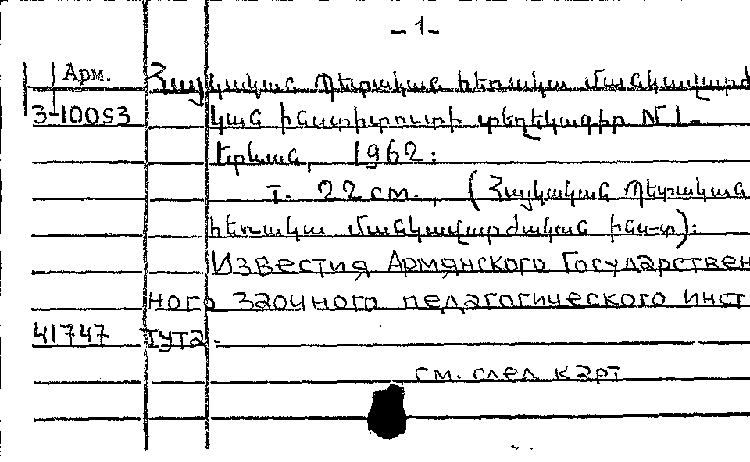 -1-
Арм. Հայկական պետական հեռակա մանկավարժ
3-10053 կան ինստիտուտի տեղեկագիր N 1-
Երևան, 1962:
т. 22 см., (Հայկական Պետական
հեռակա մանկավարժական ինս-տ):
Известия Армянского Государствен
ного заочного педагогического инст
41747 тута.
см. след. карт